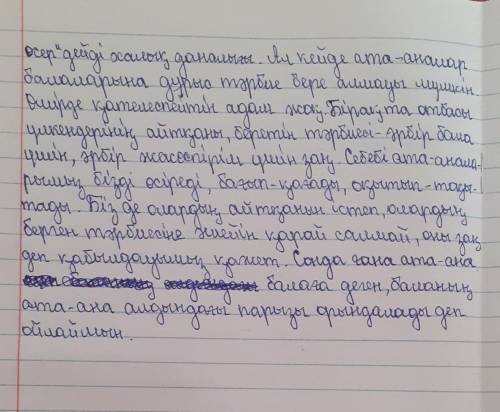 өсер" дейді халық даналығы. Ал кейде ата-аналар
балаларына дұрыс тәрбие бере алмауы мүмкін.
Өмірде қателеспейтін адам жоқ. Бірақ та отбасы
үлкендерінің айтқаны, беретін тәрбиесі - әрбір бала
үшін, әрбір жасөспірім үшін заң. Себебі ата-анала-
рымыз бізді өсіреді, бағып-қағады, оқытып-тоқы-
тады. Біз де олардың айтқанын істеп, олардың
берген тәрбиесіне шейін қарай салмай, оны заң
деп қабылдауымыз қажет. Сонда ғана ата-ана
балаға деген, баланың
ата-ана алдындағы парызы орындалады деп
ойлаймын.